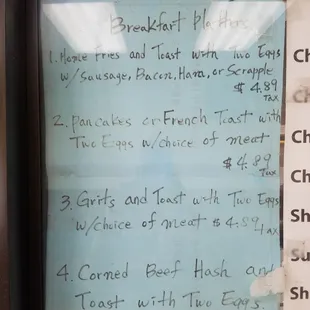 Breakfast Platters
1. Home Fries and Toast with Two Eggs
w/ Sausage, Bacon, Ham, or Scrapple
$ 4.89
Tax
2. Pancakes or French Toast with
Two Eggs w/choice of meat
$ 4.89
Tax
3. Grits and Toast with Two Eggs
w/choice of meat $ 4.89
Tax
4. Corned Beef Hash and
Toast with Two Eggs.
Ch
Ch
Ch
Ch
Sh
Su
Sh